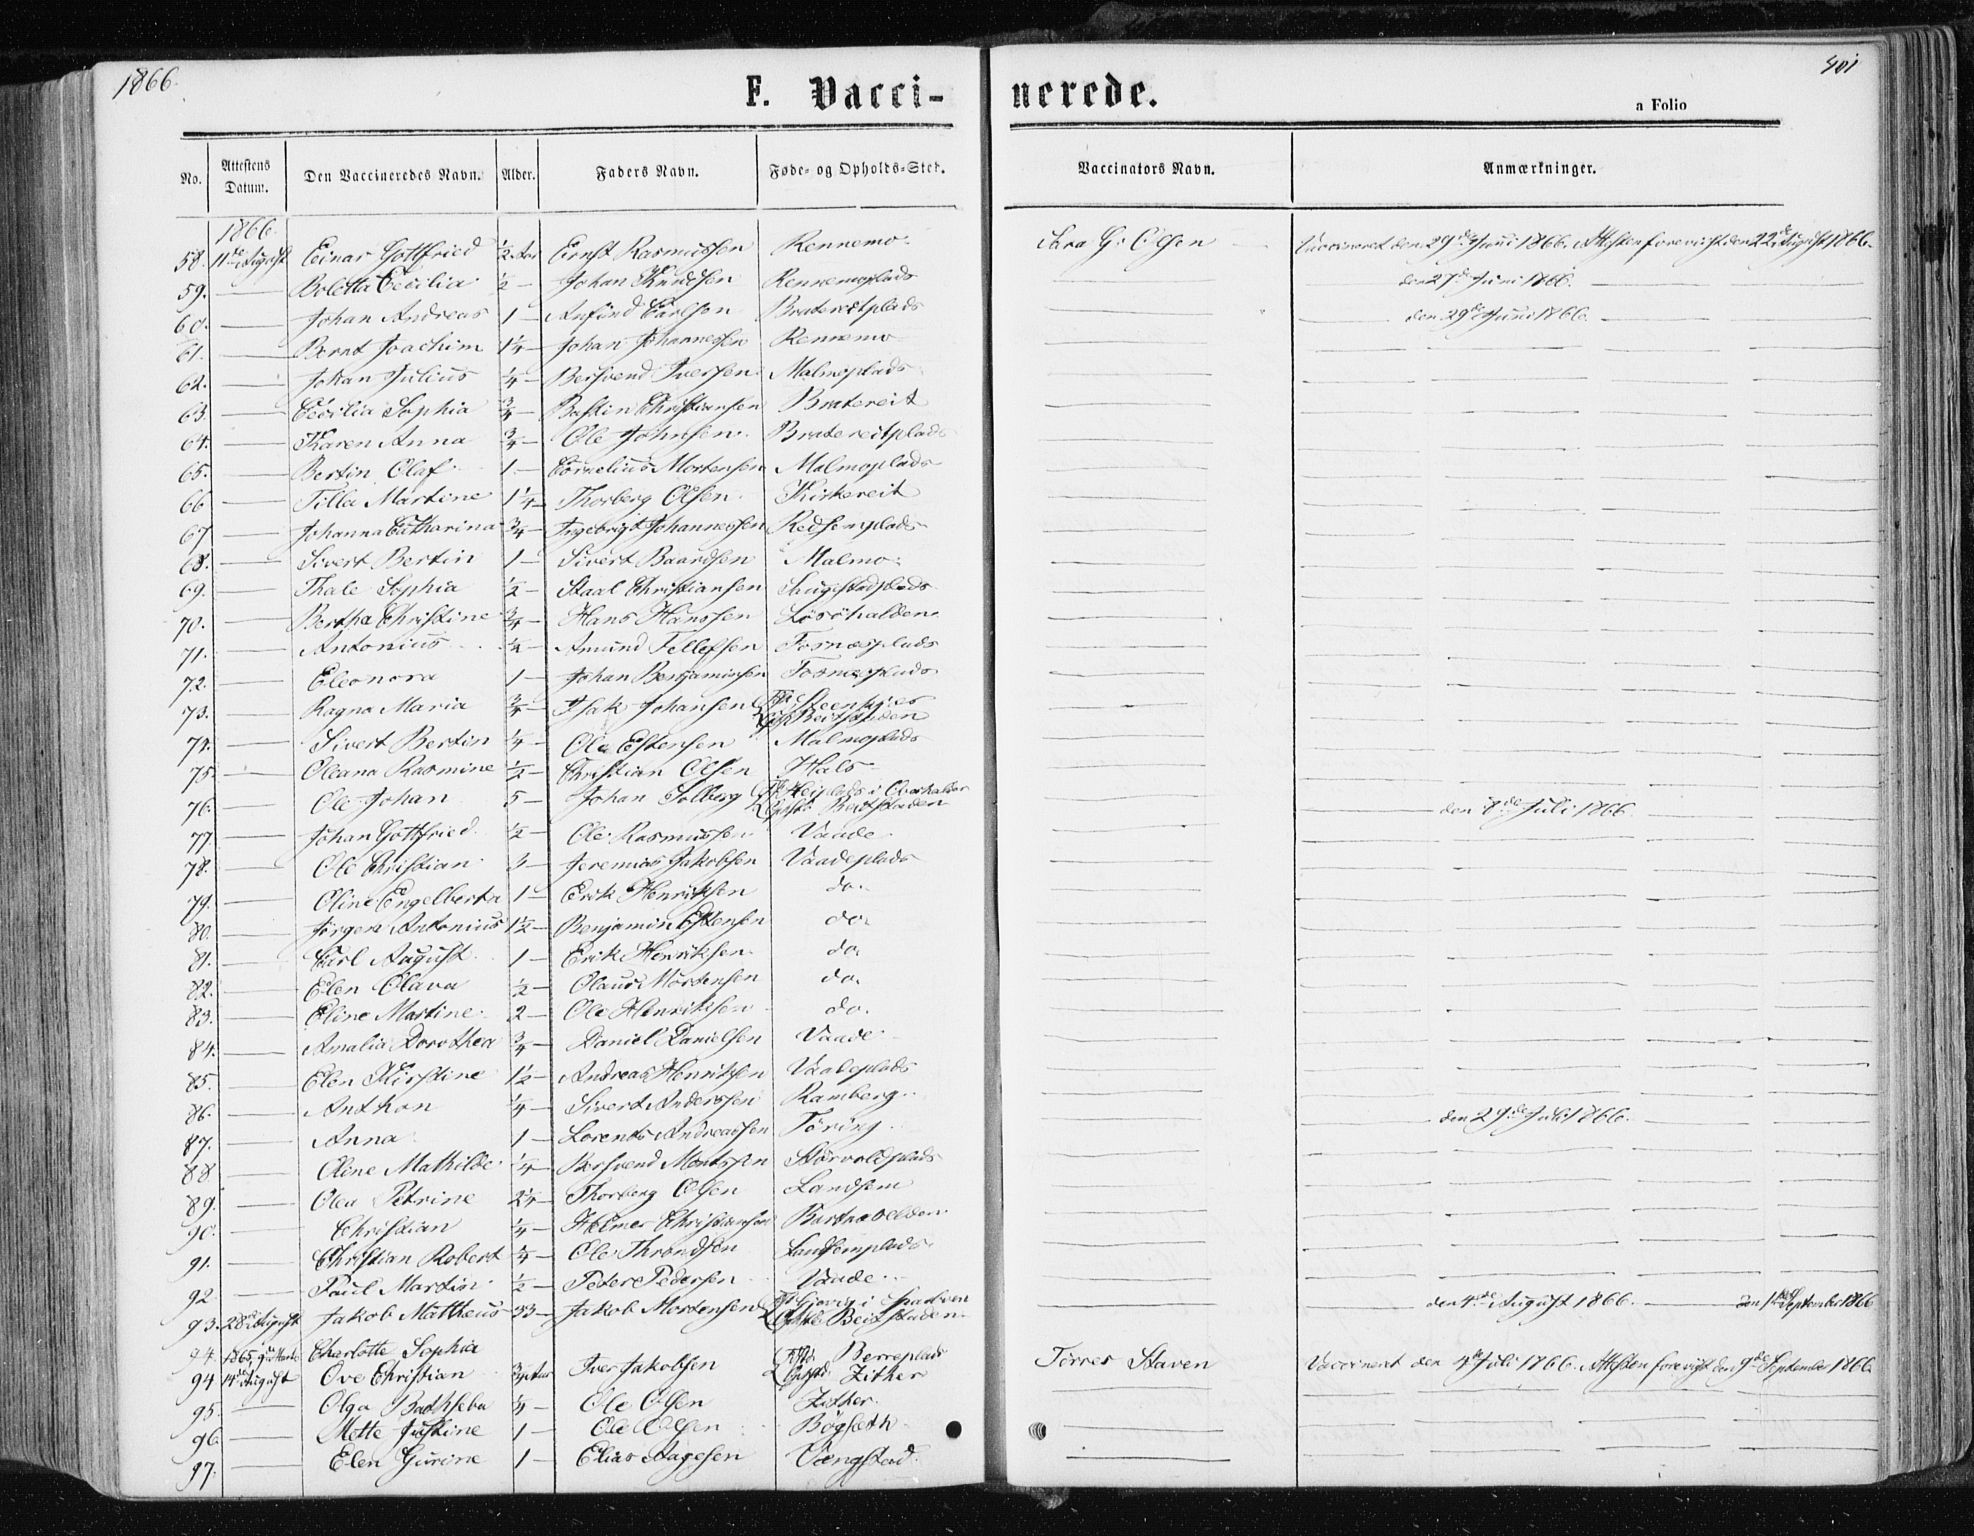 1866.
F. Vacci-
nerede.
a Folio
401
No. Attestens Datum. Den Vaccineredes Navn. Alder. Faders Navn. Føde- og Opholds-Sted. Vaccinators Navn. Anmærkninger.
1866.
58. 11te August Einar Gottfried ½ Aar Ernst Rasmussen Rennemo. G: Olsen Vaccineret den 29de Juni 1866. Attesten foreviist den 22de August 1866.
59. — Boletta Cecilia ½ — Johan Knudsen Rennemoplads — den 27de Juni 1866. —
60. — Johan Andreas 1 — Anfind Carlsen Bratereitplads — den 29de Juni 1866. —
61. — Bernt Joachim 1¼ — Johan Johannessen Rennemo —
62. — Johan Julius ¼ — Bersvend Iversen Malmoplads —
63. — Cecilia Sophia ¾ — Bastin Christiansen Bratereit —
64. — Karen Anna ¾ — Ole Johnsen. Bratereitplads —
65. — Bertin Olaf 1 — Cornelius Mortensen Malmoplads —
66 — Tilla Martine 1¼ — Thorberg Olsen. Kirkereit —
67 — Johanna Catharina ¾ — Ingebrigt Johannessen Redsemplads —
68. — Sivert Bertin 1 — Sivert Baardsen Malmo. —
69. — Thale Sophia ½ — Staal Christiansen —
70. — Bertha Christine ¾ — Hans Hanssen —
71. — Antonius ¼ — Amund Tellefsen Fosnæsplads —
72. — Eleonora 1 — Johan Benjaminsen Fosnæsplads —
73. — Ragna Maria ¾ — Isak Johansen Steenkjer
Beitstaden —
74. — Sivert Bertin ¼ — Ole Estensen Malmoplads —
75. — Oleana Rasmine ½ — Christian Olsen Hals —
76. — Ole Johan 5 — Johan Solberg i Overhalden
Opst: Beitstaden — den 8de Juli 1866. —
77. — Johan Gottfried ½ — Ole Rasmussen Vaade —
78. — Ole Christian 3 — Jeremias Jakobsen Vaadeplads —
79. — Oline Engelberta 1 — Erik Henriksen do. —
80. — Jørgen Antonius 1½ — Benjamin Estensen do. —
81. — Carl August 1 — Erik Henriksen do. —
82. — Elen Olava ½ — Olaus Mortensen do. —
83. — Eline Martine 2 — Ole Henriksen do. —
84. — Amalia Dorothea ¾ — Daniel Danielsen Vaade —
85. — Elen Kirstine 1½ — Andreas Henriksen Vaadeplads —
86. — Anthon ¼ — Sivert Anderssen Ramberg. —
87. — Anna 1 — Lorents Andreassen Töring. — den 29de Juli 1866. —
88 — Oline Mathilde ¼ — Bersvend Monssen Størvoldplads —
89. — Olea Petrine 2¼ — Thorberg Olsen Landsem —
90. — Christian ¼ — Helmer Christiansen —
91. — Christian Robert ¼ — Ole Throndsen Landsemplads —
92 — Paul Martin ½ — Peter Pedersen Vaade. —
93. 28de August Jakob Mattheus 33 — Jakob Mortensen i Sparben
Beitstaden. — den 4de August 1866. — den 1ste September 1866
94. 1865, Charlotte Sophia
94 14de August Ove Christian Iver Jakobsen Berreplads
Opst: Zither Törres Staven Vaccineret den 4de Juli 1866. Attesten foreviist den 9de September 1866.
95. — Olga Bathseba ¼ — Ole Olsen Zither. —
96. — Mette Justine 1 — Ole Olsen Bøgsæth —
97. — Elen Gurine 1 — Elias Aagesen Vængstad. —